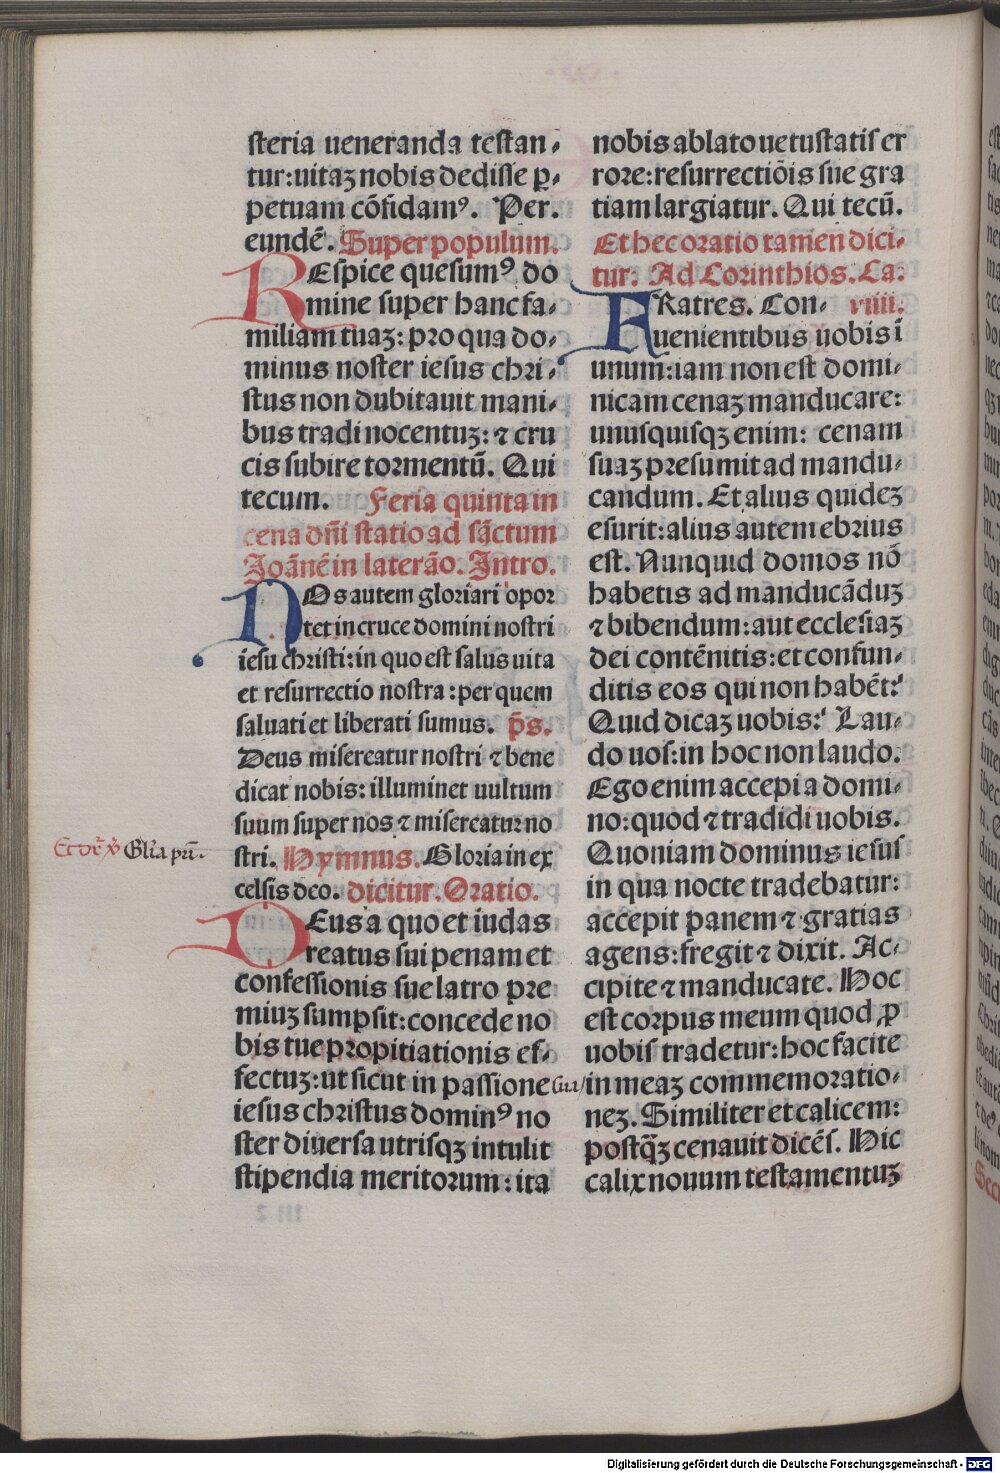 steria ueneranda testan-
tur:uitaꝫ nobis dedisse ꝑ-
petuam cõfidamꝰ. Per.
eundẽ. Super populum.
REspice quesumꝰ do
mine super hanc fa-
miliam tuaꝫ: pro qua do-
minus noster iesus chri-
stus non dubitauit mani-
bus tradi nocentuꝫ: ⁊ cru
cis subire tormentũ. Qui
tecum. Feria quinta in
cena dñi statio ad sãctum
Joãnẽ in laterão. Intro.
NOs autem gloriari opor
tet in cruce domini nostri
iesu christi: in quo est salus uita
et resurrectio nostra: per quem
saluati et liberati sumus. p̃s.
Deus misereatur nostri ⁊ bene
dicat nobis: illuminet uultum
suum super nos ⁊ misereatur no
Glĩa
stri. Hymnus. Gloria in ex
celsis deo. dicitur. Oratio.
DEus a quo et iudas
reatus sui penam et
confessionis sue latro pre
miuꝫ sumpsit: concede no
bis tue propitiationis ef-
fectuꝫ: ut sicut in passione sua
iesus christus dominꝰ no
ster diuersa utrisqꝫ intulit
stipendia meritorum: ita
nobis ablato uetustatis er
rore: resurrectiõis sue gra
tiam largiatur. Qui tecũ.
Et hec oratio tamen dici-
tur. Ad Corinthios. Ca.
FRatres. Con- viiii.
uenientibus uobis ĩ
unum: iam non est domi-
nicam cenaꝫ manducare:
unusquisqꝫ enim: cenam
suaꝫ presumit ad mandu-
candum. Et alius quideꝫ
esurit: alius autem ebrius
est. Nunquid domos nõ
habetis ad manducãduꝫ
⁊ bibendum: aut ecclesiaꝫ
dei contẽnitis: et confun-
ditis eos qui non habẽt:
Quid dicaꝫ uobis: Lau-
do uos: in hoc non laudo.
Ego enim accepi a domi-
no: quod ⁊ tradidi uobis.
Quoniam dominus iesus
in qua nocte tradebatur:
accepit panem ⁊ gratias
agens: fregit ⁊ dixit. Ac-
cipite ⁊ manducate. Hoc
est corpus meum quod ꝓ
uobis tradetur: hoc facite
in meaꝫ commemoratio-
neꝫ. Similiter et calicem:
postq̃ꝫ cenauit dicẽs. Hic
calix nouum testamentuꝫ
Digitalisierung gefördert durch die Deutsche Forschungsgemeinschaft - DFG